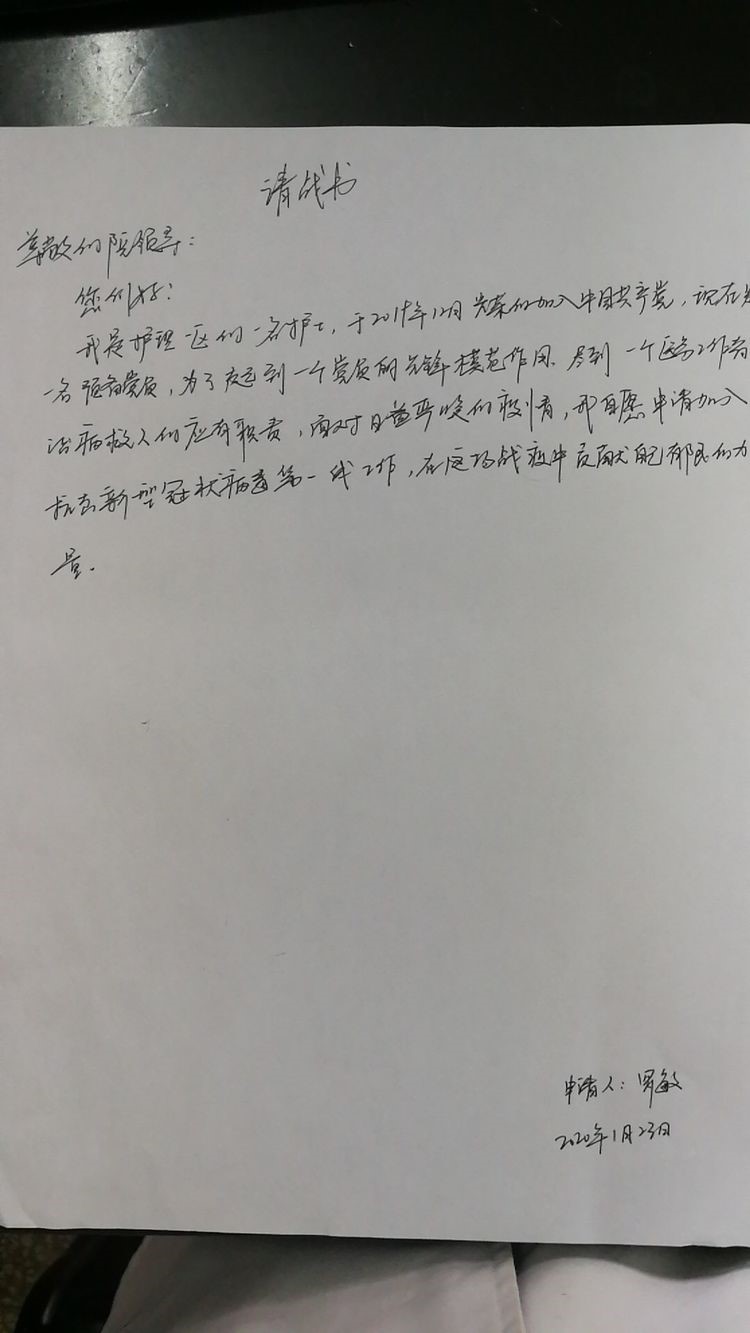 请战书
尊敬的院领导:
您们好!
我是护理一区的一名护士,于2019年12月光荣的加入中国共产党,现在是
一名预备党员,为了起到一个党员的先锋模范作用.尽到一个医务工作者
治病救人的应有职责,面对日益严峻的疫情,我自愿申请加入
抗击新型冠状病毒第一线工作,在这场战疫中贡献自己绵薄的力
量.
申请人:罗敏
2020年1月23日